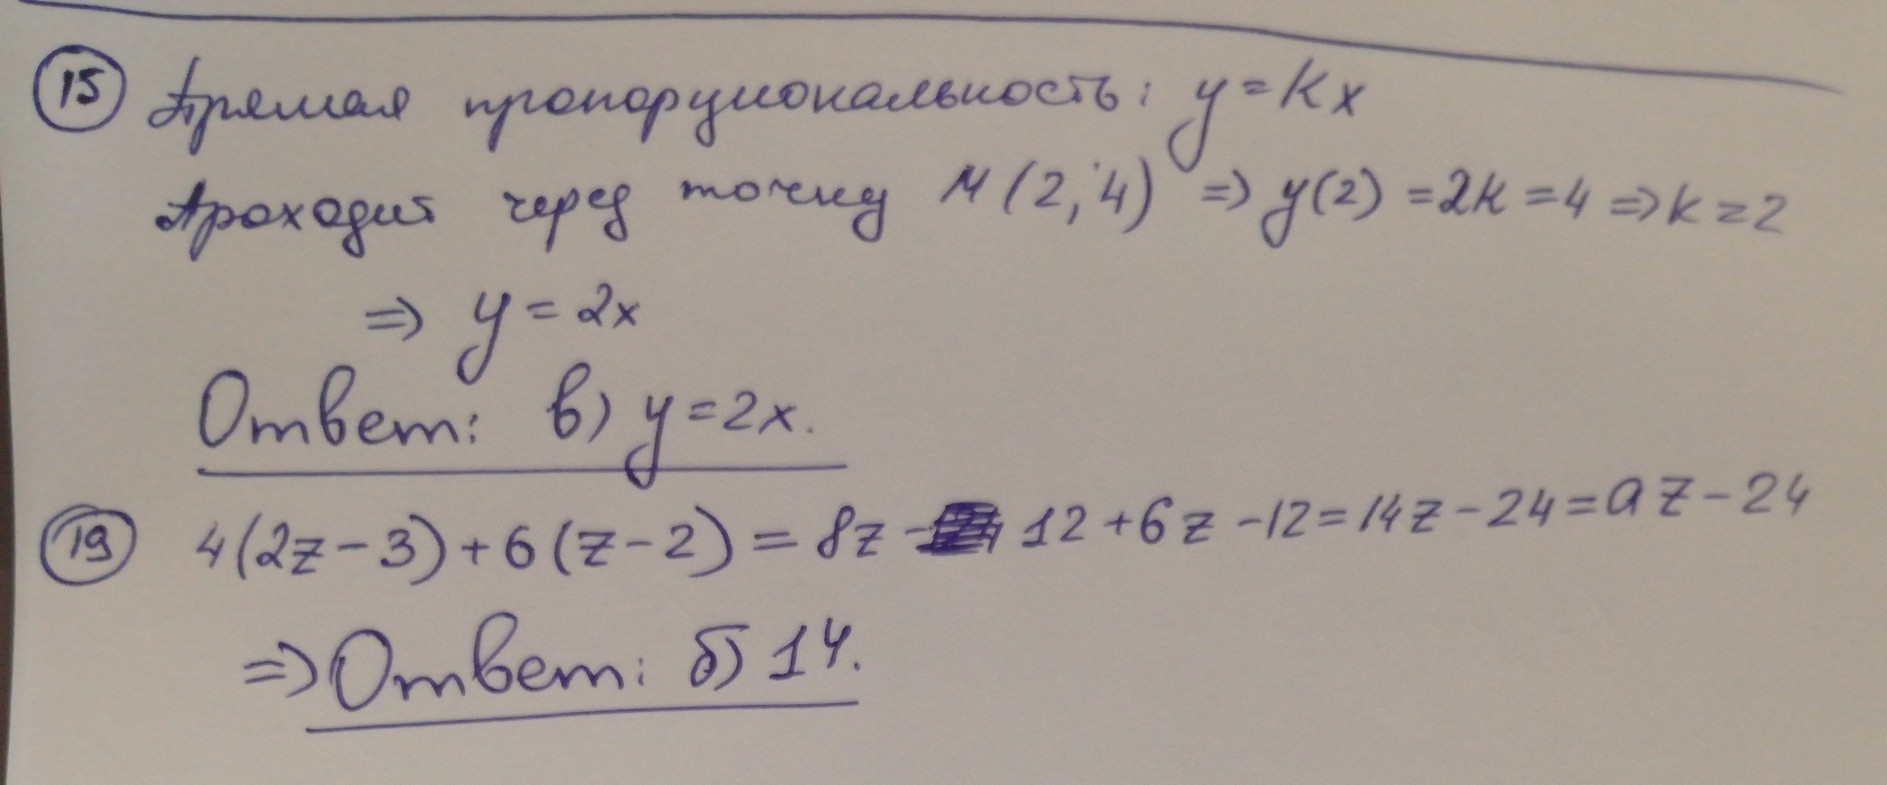 15 Прямая пропорциональность: y = kx
Проходит через точку M (2, 4) => y(2) = 2k = 4 => k = 2
=> y = 2x
Ответ: в) y = 2x.
19 4(2z - 3) + 6(z - 2) = 8z - 12 + 6z - 12 = 14z - 24 = az - 24
=> Ответ: б) 14.